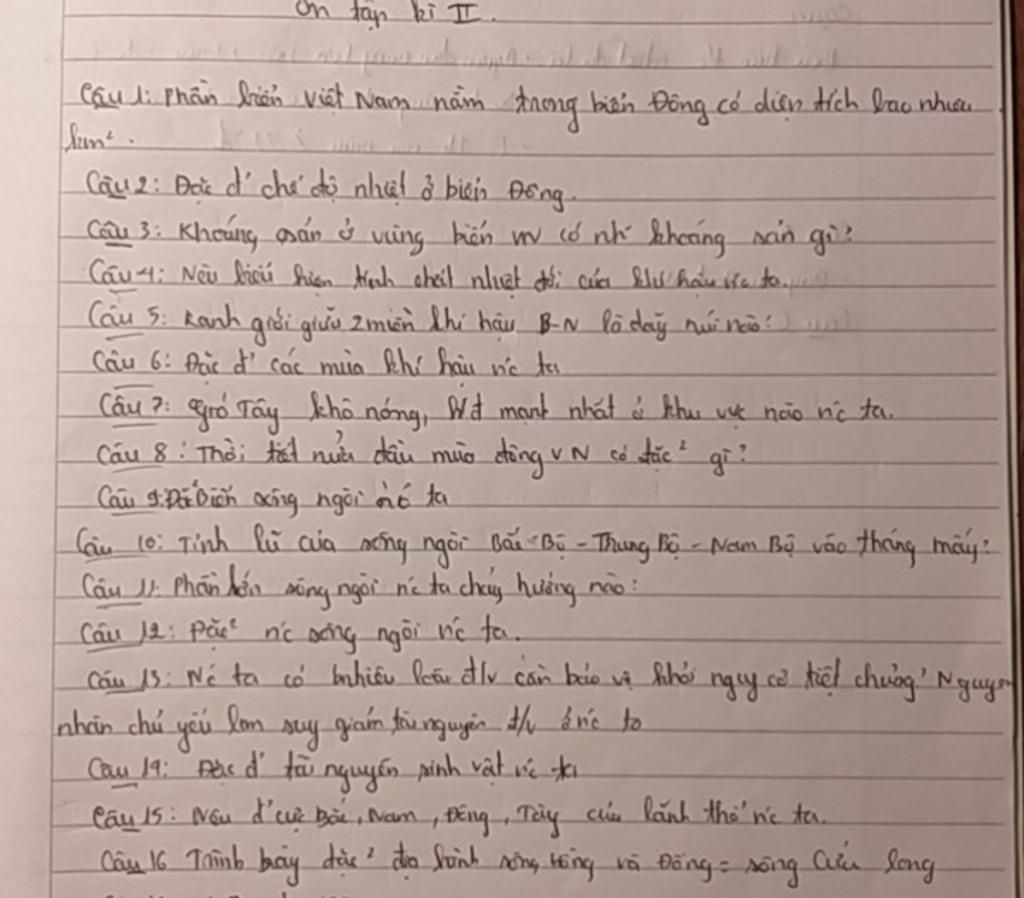 Ôn tập kì II.
Câu 1: Phần biển Việt Nam nằm trong biển Đông có diện tích bao nhiêu
km².
Câu 2: Đặc đ' chế độ nhiệt ở biển Đông.
Câu 3: Khoáng sản ở vùng biển VN có nh~ khoáng sản gì?
Câu 4: Nêu biểu hiện tính chất nhiệt đới của khí hậu nc ta.
Câu 5: Ranh giới giữa 2 miền khí hậu B-N là dãy núi nào?
Câu 6: Đặc đ' các mùa khí hậu nc ta
Câu 7: Gió Tây khô nóng, hđ mạnh nhất ở khu vực nào nc ta.
Câu 8: Thời tiết nửa đầu mùa đông VN có đặc² gì?
Câu 9: sông ngòi nc ta
Câu 10: Tính lũ của sông ngòi Bắc Bộ - Trung Bộ - Nam Bộ vào tháng mấy?
Câu 11: Phần lớn sông ngòi nc ta chảy hướng nào?
Câu 12: Đặc² nc sông ngòi nc ta.
Câu 13: Nc ta có bnhiêu loài đ/v cần bảo vệ khỏi nguy cơ tiệt chủng? Nguyên
nhân chủ yếu làm suy giảm tài nguyên đ/v ở nc ta
Câu 14: Đặc đ' tài nguyên sinh vật nc ta
Câu 15: Nêu đ' cực Bắc, Nam, Đông, Tây của lãnh thổ nc ta.
Câu 16 Trình bày đặc² địa hình sông Hồng và Đồng = sông Cửu Long